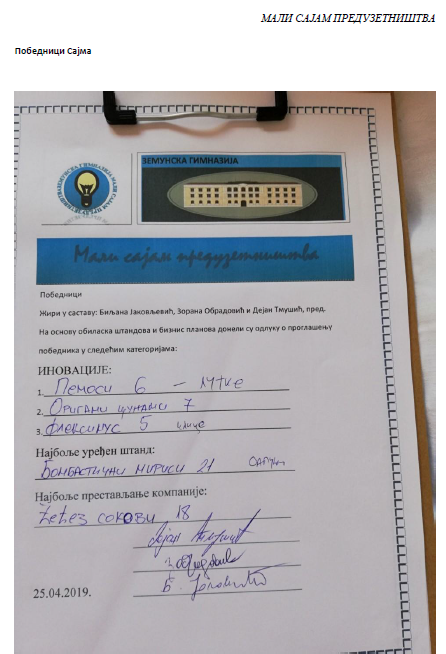 МАЛИ САЈАМ ПРЕДУЗЕТНИШТВА
Победници Сајма
ЗЕМУНСКА ГИМНАЗИЈА
Мали сајам предузетништва
Победници
Жири у саставу: Биљана Јаковљевић, Зорана Обрадовић и Дејан Тмушић, пред.
На основу обиласка штандова и бизнис планова донели су одлуку о проглашењу
победника у следећим категоријама:
ИНОВАЦИЈЕ:
1. 6 –
2. Оригами цунами 7
3. Флексинус 5
Најбоље уређен штанд:
Бомбастични мириси 21
Најбоље престављање компаније:
сокови 18
25.04.2019.